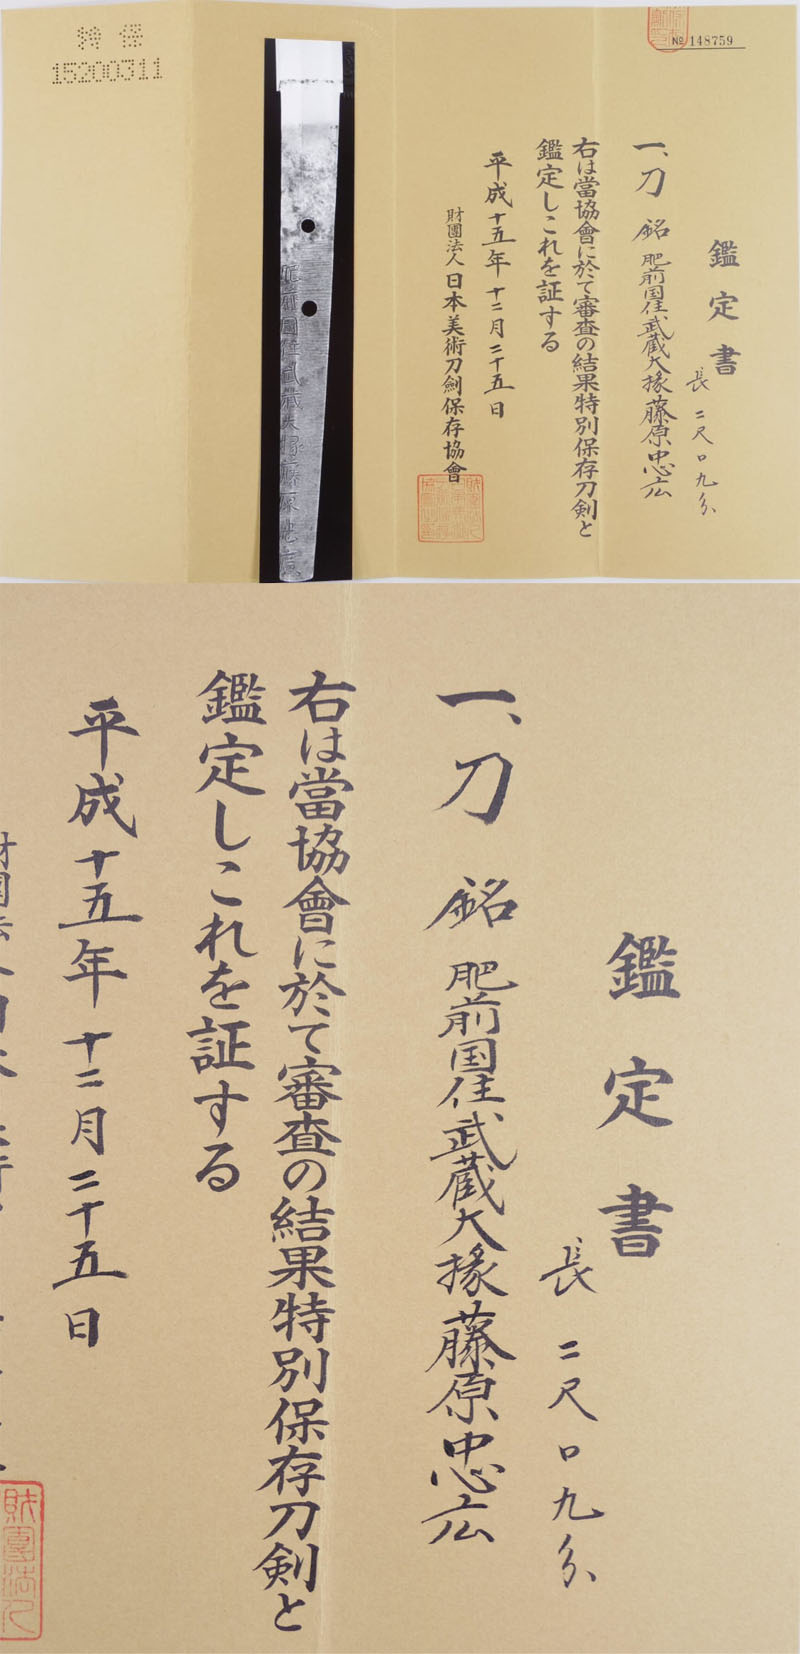 特保
15200311
№ 148759
鑑定書
長 二尺〇九分
一、刀 銘 肥前国住武蔵大掾藤原忠広
右は當協會に於て審査の結果特別保存刀剣と
鑑定しこれを証する
平成十五年十二月二十五日
財團法人 日本美術刀劍保存協會
肥前國住武蔵大掾藤原忠廣
鑑定書
長 二尺〇九分
一、刀 銘 肥前国住武蔵大掾藤原忠広
右は當協會に於て審査の結果特別保存刀剣と
鑑定しこれを証する
平成十五年十二月二十五日
財團法人